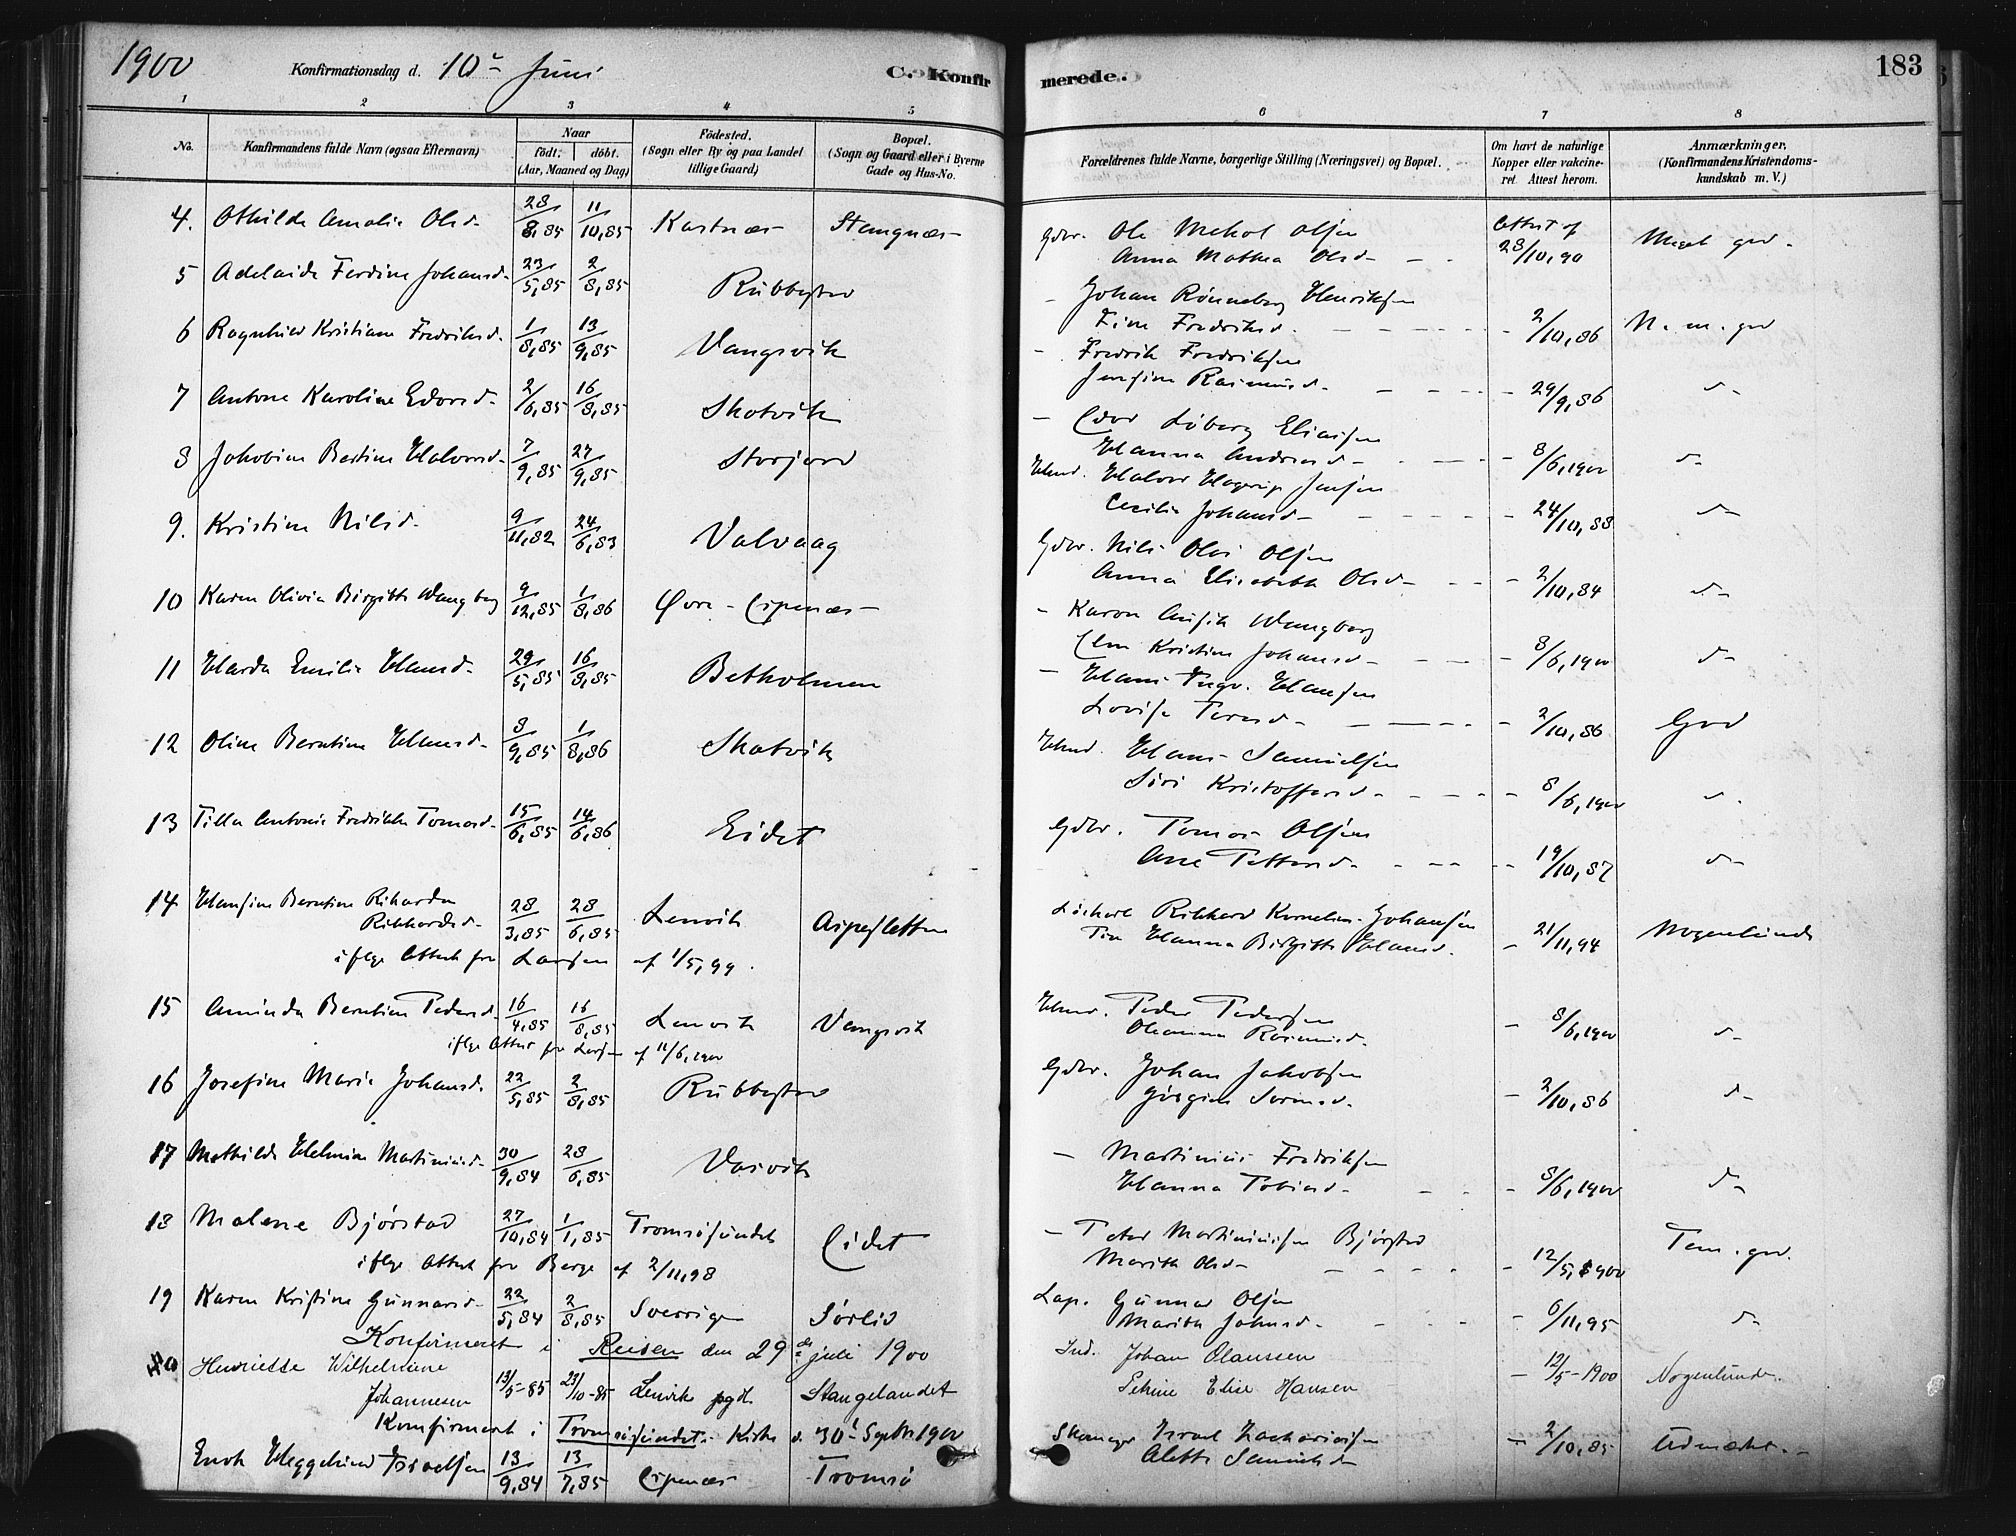 1900 Konfirmationsdag d. 10de Juni C. Konfirmerede. 183
1 2 3 4 5 6 7 8
No. Konfirmandens fulde Navn (ogsaa Efternavn) Naar födt. döbt. (Aar, Maaned og Dag) Födested. (Sogn eller By og paa Landet tillige Gaard) Bopæl. (Sogn og Gaard eller i Byerne Gade og Hus-No. Forældrenes fulde Navne, borgerlige Stilling (Næringsvei) og Bopæl. Om havt de naturlige Kopper eller vakcineret. Attest herom. Anmærkninger. (Konfirmandens Kristendomskundskab m. V.)
4. Othilde Amalie Olsd. 28/8,85 11/10,85 Kastnæs Stangnæs Gdbr. Ole Mekal Olsen Attest af
Anna Mathea Olsd 28/10,90 Meget god.
5 Adelaide Ferdine Johansd. 23/5,85 2/8,85 Rubbestad - Johan Rønneberg Henriksen
Fine Fredriksd. 2/10,86 N. m. god
6 Ragnhild Kristiane Fredriksd. 1/8,85 13/9,85 Vangsvik - Fredrik Fredriksen
Jensine Rasmusd. 29/9,86 d-
7 Antone Karoline Edvardsd. 2/6,85 16/8,85 Skatvik - Edvard Løberg Eliassen
Hanna Andreasd 8/6,1900 d-
8 Jakobine Bertine Halvorsd. 7/9,85 27/9,85 Storjord Hmd. Halvor Hagerup Jensen
Cecilie Johansd 24/10,88 d-
9. Kristine Nilsd. 9/11,82 24/6,83 Valvaag Gdbr. Nils Olai Olsen
Anna Elisabeth Olsd 2/10,84 d-
10 Karen Olivia Birgitte Wangberg 9/12,85 1/8,86 Øvre-Espenæs - Karon Wangberg
Kristine Johansd 8/6,1900 d-
11 Harda Emilie Hansd. 29/5,85 16/8,85 Betholmen - Hans Ingv. Hansen
Lovise 2/10,86 God
12 Oline Berntine Hansd. 8/9,85 1/8,86 Skatvik Hmd. Hans Samuelsen
Siri Kristoffersd. 8/6,1900 d.
13 Tilla Antonie Fredrikke Tomasd. 15/6,85 14/6,86 Eidet Gdbr. Tomas Olsen
Ane Pettersd. 19/10,87 d-
14 Hansine Berntine Rikarda
Rikhardsd. 28/3,85 28/6,85 Lenvik Aspesletten Rikhard Kornelius Johansen
Hanna Birgitte Hansd. 21/11,94 Nogenlunde
iflge Attest fra Larsen af 1/5,99.
15 Aminda Berntine Pedersd. 16/4,85 16/8,85 Lenvik Vangsvik Hmd. Peder Pedersen
Rasmusd. 8/6,1900 d-
iflge Attest fra Larsen af 11/6,1900
16 Josefine Marie Johansd. 22/5,85 2/8,85 Rubbestad Gdbr. Johan Jakobsen
Jørgine 2/10,86 d-
17 Mathilde Helmine Martinusd. 30/9,84 28/6,85 Vasvik - Martinus Fredriksen
Hanna Tobiasd. 8/6,1900 d-
18 Malene Bjørstad 27/10,84 1/1,85 Tromsøsundet Eidet - Peter Martinussen Bjørstad
Marith Olsd 12/5,1900 Tem. god.
iflge Attest fra Berge af 2/11,98
19 Karen Kristine Gunnarsd. 22/5,84 2/8,85 Sverrige Sørlid Lap. Gunnar Olsen
Marith 6/11,95 d-
Konfirmeret i Reisen den 29de juli 1900
20 Henriette Wilhelmine
Johannesen 13/5-85 23/10-85 Lenvik pgd. Stangelandet Ind. Johan Olaussen
Sekine Elise Hansen 12/5-1900 Nogenlunde.
Konfirmert i Tromsøsundets Kirke d. 30te Septbr 1900
Enok Heggelund Israelsen 13/9,84 13/7,85 Espenæs Tromsø Skomager Israel Zachariassen
Alette 2/10,85 Udmærket.